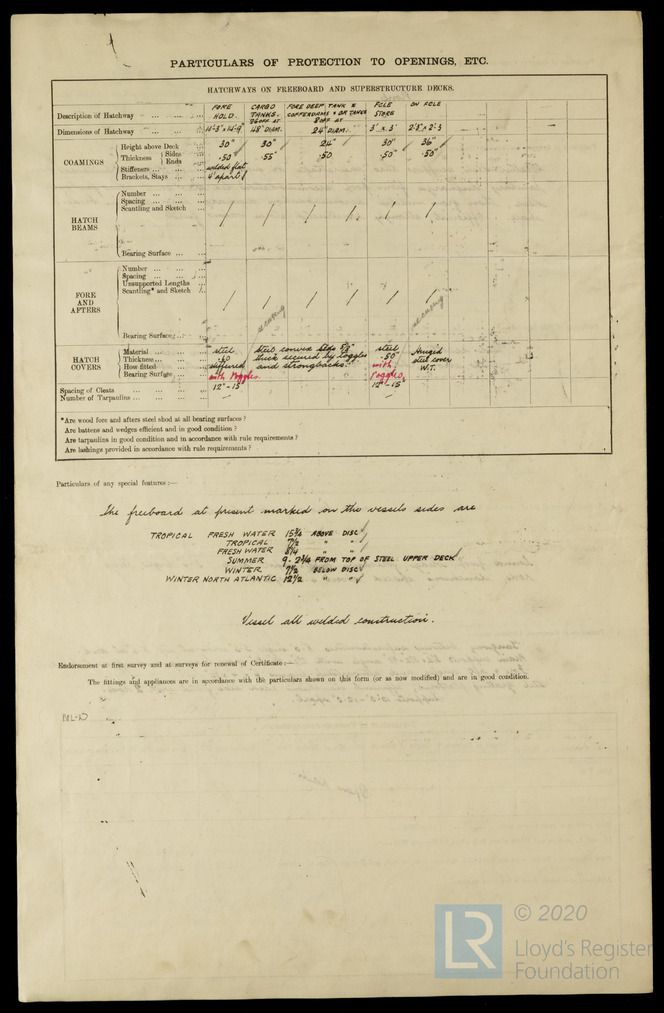 PARTICULARS OF PROTECTION TO OPENINGS, ETC.
HATCHWAYS ON FREEBOARD AND SUPERSTRUCTURE DECKS.
Description of Hatchway ... ... ... FORE HOLD. CARGO TANKS. 26 OFF AT FORE DEEP TANK & COFFERDAMS & OR TANKS 8 OFF AT FCLE STORE ON FCLE
Dimensions of Hatchway ... 14'-3" x 14'-9" 48" DIAM. 24" DIAM. 3' x 3' 2'-3" x 2'-3
COAMINGS
Height above Deck 30" 30" 24" 30" 36"
Thickness Sides Ends .50" .55" .50 .50" .50"
Stiffeners ... welded flat
Brackets, Stays ... 4' apart
HATCH BEAMS
Number ... ... ...
Spacing ... ... ...
Scantling and Sketch / / / / / /
Bearing Surface ... ...
FORE AND AFTERS
Number ... ... ...
Spacing ... ... ...
Unsupported Lengths ...
Scantling* and Sketch / / / / / /
Bearing Surface ... ...
HATCH COVERS
Material ... ... steel steel convex lids 5/8" steel Hinged
Thickness ... thick secured by toggles .50" steel cover
How fitted ... stiffened and strongbacks. with W.T.
Bearing Surface ... with toggles. toggles,
Spacing of Cleats ... ... 12" - 15" 12" - 15"
Number of Tarpaulins ... ... —
*Are wood fore and afters steel shod at all bearing surfaces ?
Are battens and wedges efficient and in good condition ?
Are tarpaulins in good condition and in accordance with rule requirements ?
Are lashings provided in accordance with rule requirements ?
Particulars of any special features :—
The freeboard at present marked on the vessels sides are
TROPICAL FRESH WATER 15¾ ABOVE DISC
TROPICAL 7½ " "
FRESH WATER 8¼ " "
SUMMER 9 - 2¾ FROM TOP OF STEEL UPPER DECK
WINTER 7½ BELOW DISC
WINTER NORTH ATLANTIC 12½ " "
Vessel all welded construction.
Endorsement at first survey and at surveys for renewal of Certificate :—
The fittings and appliances are in accordance with the particulars shown on this form (or as now modified) and are in good condition.
LR
© 2020
Lloyd's Register
Foundation